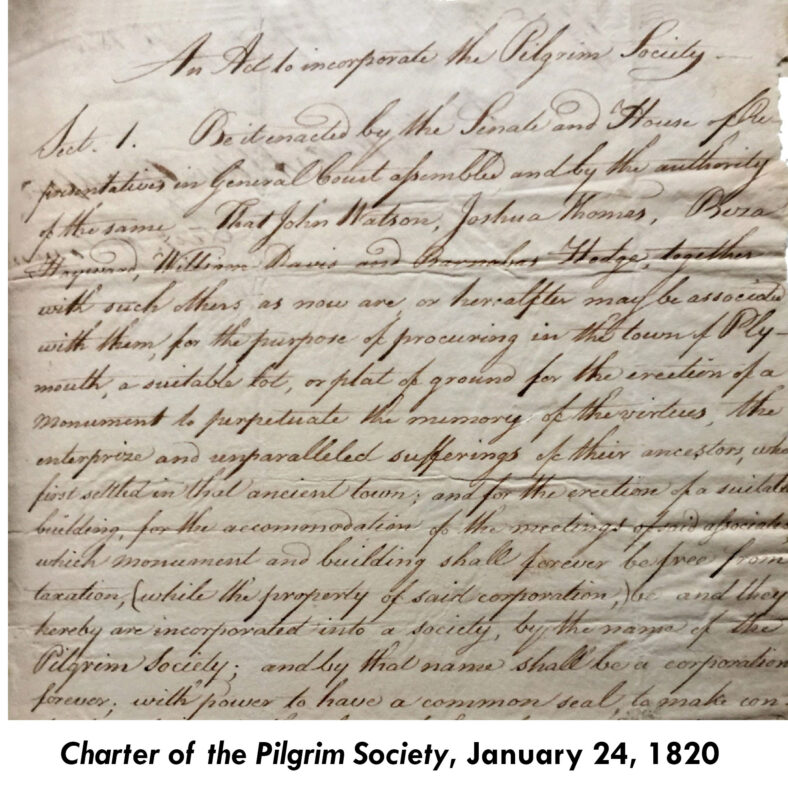 An Act to incorporate the Pilgrim Society
Sect. 1. Be it enacted by the Senate and House of Re-
presentatives in General Court assembled and by the authority
of the same That John Watson, Joshua Thomas, Beza
Hayward, William Davis and Barnabas Hedge, together
with such others as now are, or hereafter may be associated
with them, for the purpose of procuring in the town of Ply-
mouth, a suitable lot, or plat of ground for the erection of a
monument to perpetuate the memory of the virtues, the
enterprize and unparalleled sufferings of their ancestors, who
first settled in that ancient town; and for the erection of a suitable
building, for the accommodation of the meetings of said associates,
which monument and building shall forever be free from
taxation, (while the property of said corporation,) be and they
hereby are incorporated into a society, by the name of the
Pilgrim Society; and by that name shall be a corporation
forever; with power to have a common seal, to make con-
Charter of the Pilgrim Society, January 24, 1820